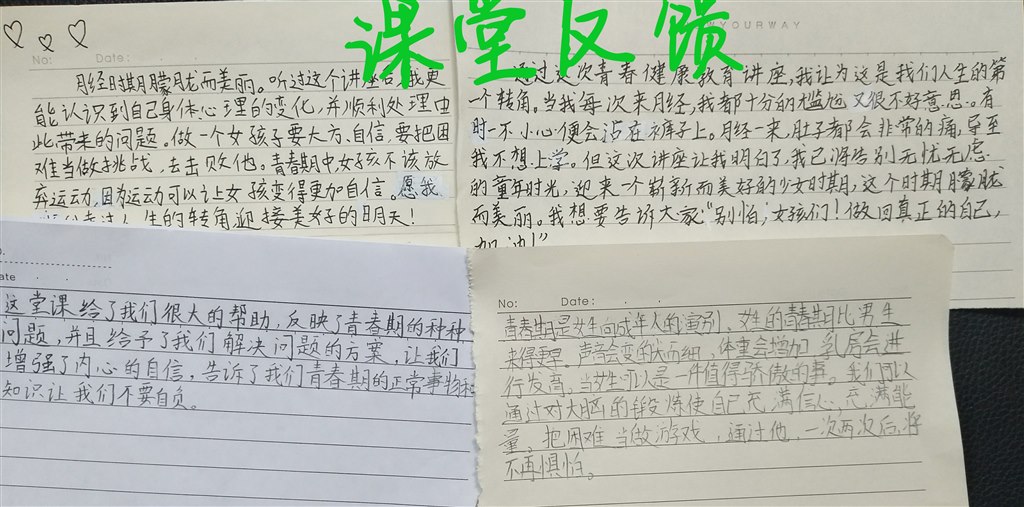 课堂反馈
No: Date:
月经时期朦胧而美丽。听过这个讲座后,我更
能认识到自己身体心理的变化,并顺利处理由
此带来的问题。做一个女孩子要大方、自信,要把困
难当做挑战,去击败他。青春期中女孩不该放
弃运动,因为运动可以让女孩变得更加自信。愿我
走过人生的转角迎接美好的明天!
YOURWAY
通过这次青春健康教育讲座,我认为这是我们人生的第
一个转角。当我每次来月经,我都十分的尴尬又很不好意思。有
时一不小心便会沾在裤子上。月经一来,肚子都会非常的痛,导至
我不想上学。但这次讲座让我明白了,我已将告别无忧无虑
的童年时光,迎来一个崭新而美好的少女时期,这个时期朦胧
而美丽。我想要告诉大家:“别怕,女孩们!做回真正的自己,
加油!”
这堂课给了我们很大的帮助,反映了青春期的种种
问题,并且给予了我们解决问题的方案,让我们
增强了内心的自信,告诉了我们青春期的正常事物和
知识让我们不要自负。
No: Date:
青春期是女生向成年人的演别、女生的青春期比男生
来得更早。声音会变的尖而细,体重会增加,乳房会进
行发育,当女生可以是一件值得骄傲的事。我们可以
通过对大脑的锻炼使自己充满信心、充满能
量,把困难当做游戏,通过他,一次两次后,将
不再惧怕。